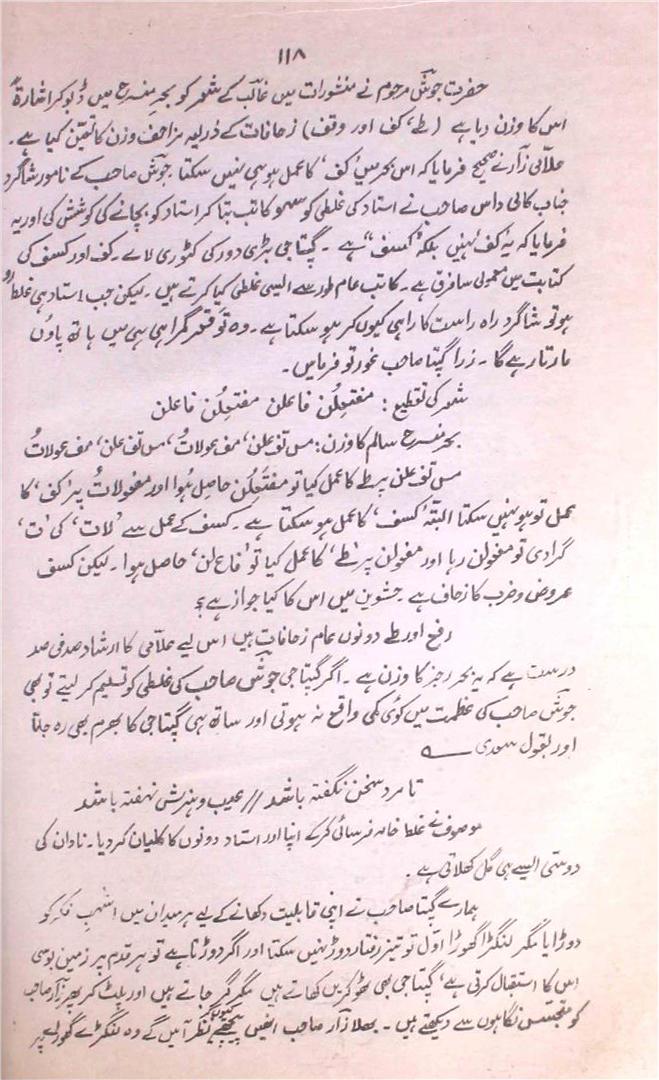 ۱۱۸
حضرت جوش مرحوم نے منشورات میں غالب کے شعر کو بحرِ منسرح میں ڈبو کر اشارۃً
اس کا وزن دیا ہے (طے، کف اور وقف) زحافات کے ذریعہ مزاحف وزن کا تعین کیا ہے۔
علامی زار نے صحیح فرمایا کہ اس بحر میں ’کف‘ کا عمل ہو ہی نہیں سکتا۔ جوش صاحب کے نامور شاگرد
جناب کالی داس صاحب نے استاد کی غلطی کو سہوِ کاتب بتا کر استاد کو بچانے کی کوشش کی اور یہ
فرمایا کہ یہ ’کف‘ نہیں بلکہ ’’کسف‘‘ ہے۔ گپتا جی بڑی دور کی کٹوری لائے۔ کف اور کسف کی
کتابت میں معمولی سا فرق ہے۔ کاتب عام طور سے ایسی غلطی کیا کرتے ہیں۔ لیکن جب استاد ہی غلط رو
ہو تو شاگرد راہِ راست کا راہی کیوں کر ہو سکتا ہے۔ وہ تو قعرِ گمراہی ہی میں ہاتھ پاؤں
مارتا رہے گا۔ ذرا گپتا صاحب غور تو فرمائیں۔
شعر کی تقطیع: مفتعلن فاعلن مفتعلن فاعلن
بحرِ منسرح سالم کا وزن: مس تف علن، مف عولاتُ، مس تف علن، مف عولاتُ
مس تف علن پر طے کا عمل کیا تو مفتعلن حاصل ہوا اور مفعولاتُ پر ’کف‘ کا
عمل تو ہو نہیں سکتا البتہ ’کسف‘ کا عمل ہو سکتا ہے۔ کسف کے عمل سے ’لات‘ کی ’ت‘
گرا دی تو مفعولن رہا اور مفعولن پر ’طے‘ کا عمل کیا تو ’فاع لن‘ حاصل ہوا۔ لیکن کسف
عروض و ضرب کا زحاف ہے حشوین میں اس کا کیا جواز ہے؟
رفع اور طے دونوں عام زحافات ہیں اس لیے علامی کا ارشاد صد فی صد
درست ہے کہ یہ بحرِ رجز کا وزن ہے۔ اگر گپتا جی جوش صاحب کی غلطی کو تسلیم کر لیتے تو بھی
جوش صاحب کی عظمت میں کوئی کمی واقع نہ ہوتی اور ساتھ ہی گپتا جی کا بھرم بھی رہ جاتا
اور بقول سعدی
تا مرد سخن نگفتہ باشد // عیب و ہنرش نہفتہ باشد
موصوف نے غلط خامہ فرسائی کر کے اپنا اور استاد دونوں کا کلیان کر دیا۔ نادان کی
دوستی ایسے ہی گل کھلاتی ہے۔
ہمارے گپتا صاحب نے اپنی قابلیت دکھانے کے لیے ہر میدان میں اشہبِ فکر کو
دوڑایا مگر لنگڑا گھوڑا اوّل تو تیز رفتار دوڑ نہیں سکتا اور اگر دوڑتا ہے تو ہر قدم پر زمین بوسی
اس کا استقبال کرتی ہے، گپتا جی بھی ٹھوکریں کھاتے ہیں مگر گر جاتے ہیں اور پلٹ کر پھر زار صاحب
کو متجسس نگاہوں سے دیکھتے ہیں۔ بھلا زار صاحب انہیں پیچھے نظر آئیں گے وہ لنگڑے گھوڑے پر